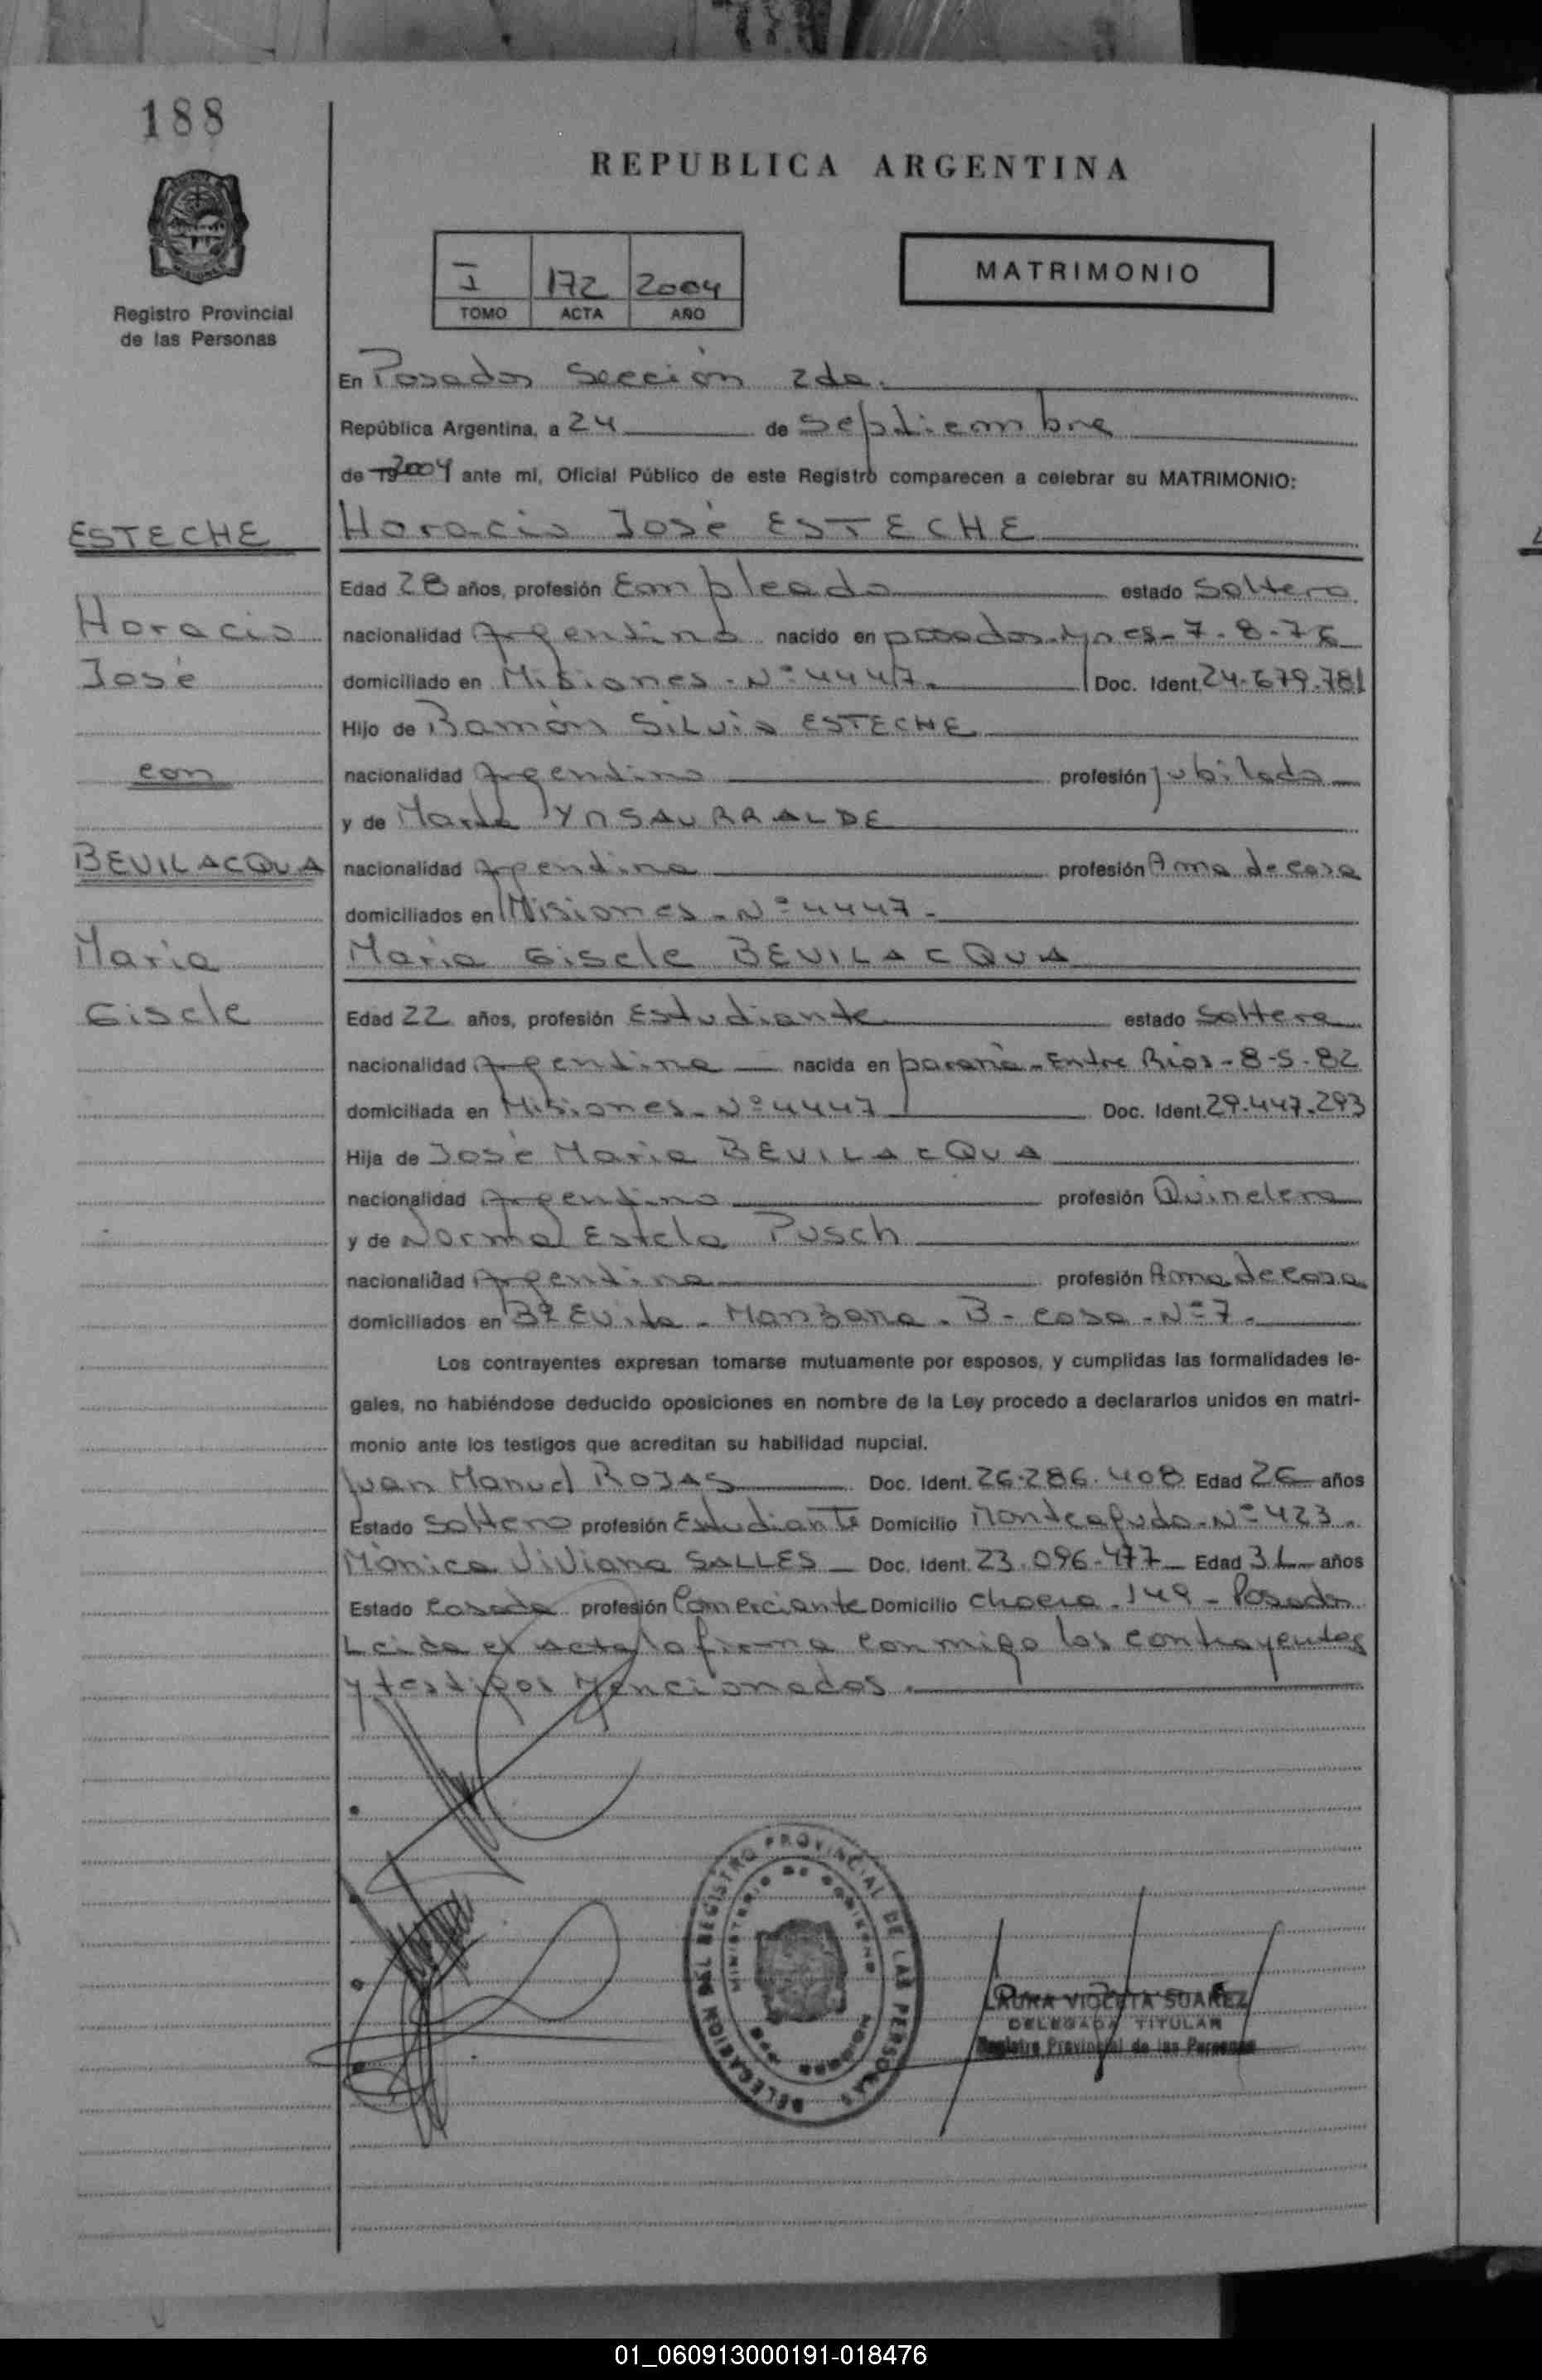 188
REPUBLICA ARGENTINA
Registro Provincial
de las Personas
I 172 2004
TOMO ACTA AÑO
MATRIMONIO
En Posadas Sección 2da.
República Argentina, a 24 de Septiembre
de 19 2004 ante mí, Oficial Público de este Registro comparecen a celebrar su MATRIMONIO:
ESTECHE
Horacio José ESTECHE
Edad 28 años, profesión Empleado estado Soltero
Horacio
nacionalidad Argentino nacido en posadas-Mnes-7-8-76
José
domiciliado en Misiones-Nº4447- Doc. Ident. 24.679.781
Hijo de Ramón Silvio ESTECHE
con
nacionalidad Argentino profesión jubilado
y de Marta YNSAURRALDE
BEVILACQUA
nacionalidad Argentina profesión Ama de casa
domiciliados en Misiones-Nº4447-
Maria
Maria Gisele BEVILACQUA
Gisele
Edad 22 años, profesión Estudiante estado Soltera
nacionalidad Argentina nacida en paraná-Entre Rios-8-5-82
domiciliada en Misiones-Nº4447 Doc. Ident. 29.447.293
Hija de José Maria BEVILACQUA
nacionalidad Argentino profesión Quinelero
y de Norma Estela Pusch
nacionalidad Argentina profesión Ama de casa
domiciliados en Bº Evita-Manzana-B-casa-Nº7-
Los contrayentes expresan tomarse mutuamente por esposos, y cumplidas las formalidades le-
gales, no habiéndose deducido oposiciones en nombre de la Ley procedo a declararlos unidos en matri-
monio ante los testigos que acreditan su habilidad nupcial.
Juan Manuel ROJAS Doc. Ident. 26.286.408 Edad 26 años
Estado Soltero profesión Estudiante Domicilio Monteagudo-Nº423.
Mónica Viviana SALLES Doc. Ident. 23.096.477 Edad 31 años
Estado Casada profesión Comerciante Domicilio 149-Posadas
Leida el acta la firma conmigo los contrayentes
y testigos Mencionados.
DELEGACION DEL REGISTRO PROVINCIAL DE LAS PERSONAS
MINISTERIO DE GOBIERNO
LAURA VIOLETA SUAREZ
DELEGADA TITULAR
Registro Provincial de las Personas
01_060913000191-018476